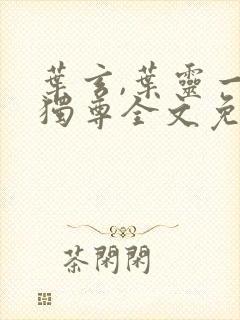 葉玄,葉靈一
獨尊全文免
茶閑閑